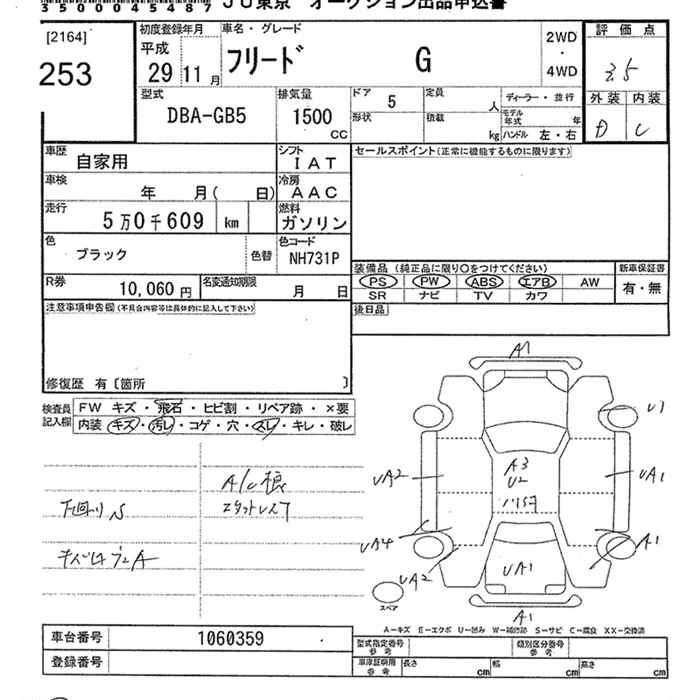 35000045487 JU東京 オークション出品申込書
[2164]
253
初度登録年月 車名・グレード
平成 29 11月 フリード G
2WD
・
4WD
評価点
3.5
外装 内装
D C
型式 DBA-GB5
排気量 1500 CC
ドア 5 定員 人
形状 積載 kg
ディーラー・並行
モデル年式 年
ハンドル 左・右
車歴 自家用
シフト IAT
車検 年 月( 日)
冷房 AAC
走行 5万0千609 km
燃料 ガソリン
色 ブラック 色替
色コード NH731P
R券 10,060円
名変通知期限 月 日
セールスポイント(正常に機能するものに限ります)
装備品 (純正品に限り○をつけてください)
PS PW ABS エアB AW
SR ナビ TV カワ
新車保証書
有・無
後日品
注意事項申告欄(不具合内容等は具体的に記入して下さい)
修復歴 有〔箇所 〕
検査員記入欄
FW キズ・飛石・ヒビ割・リペア跡・×要
内装 キズ・汚レ・コゲ・穴・スレ・キレ・破レ
下回りS
A/C
A1
U1
A3
U2
UA2
UA1
UA4
UA2
A1
UA1
A1
スペア
A−キズ E−エクボ U−凹み W−補修跡 S−サビ C−腐食 XX−交換済
車台番号 1060359
登録番号
型式指定番号 参考
類別区分番号 参考
車庫証明用 参考
長さ cm 幅 cm 高さ cm